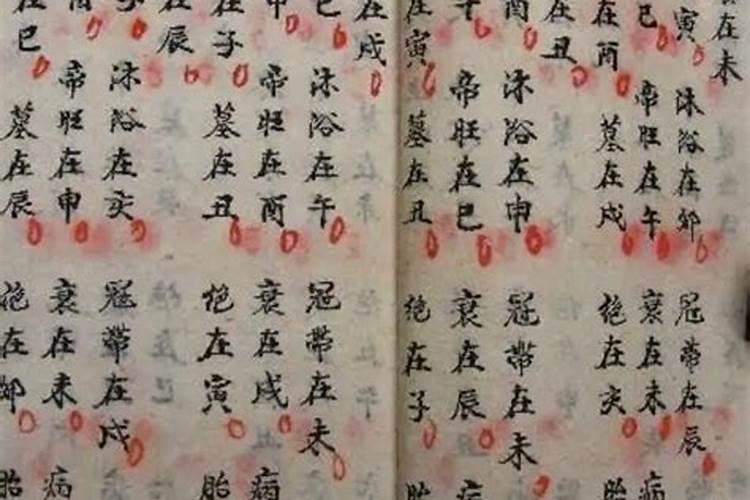 在未
寅
沐浴在卯
冠帶在辰
巳
帝旺在午
衰在未
病
在酉
墓在戌
絕在亥
胎
在丑
酉
沐浴在申
冠帶在未
帝旺在巳
衰在辰
病
在寅
墓在丑
絕在子
胎
在戌
巳
沐浴在午
冠帶在未
申
帝旺在酉
衰在戌
病
在子
墓在丑
絕在寅
胎
在辰
子
沐浴在亥
冠帶在戌
帝旺在申
衰在未
病
在巳
墓在辰
絕在卯
胎